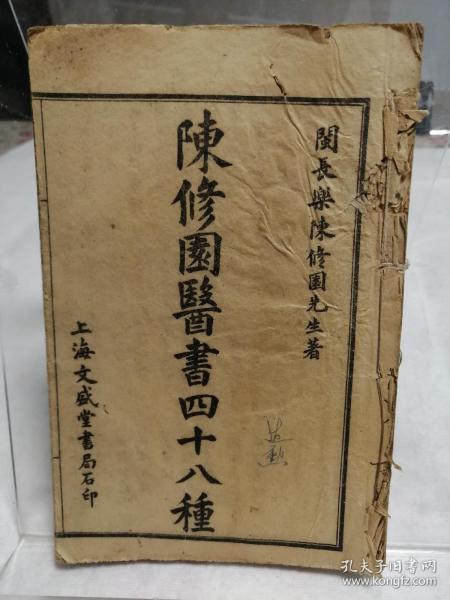 閩長樂陳修園先生著
陳修園醫書四十八種
上海文盛堂書局石印
孔夫子旧书网
www.kongfz.com